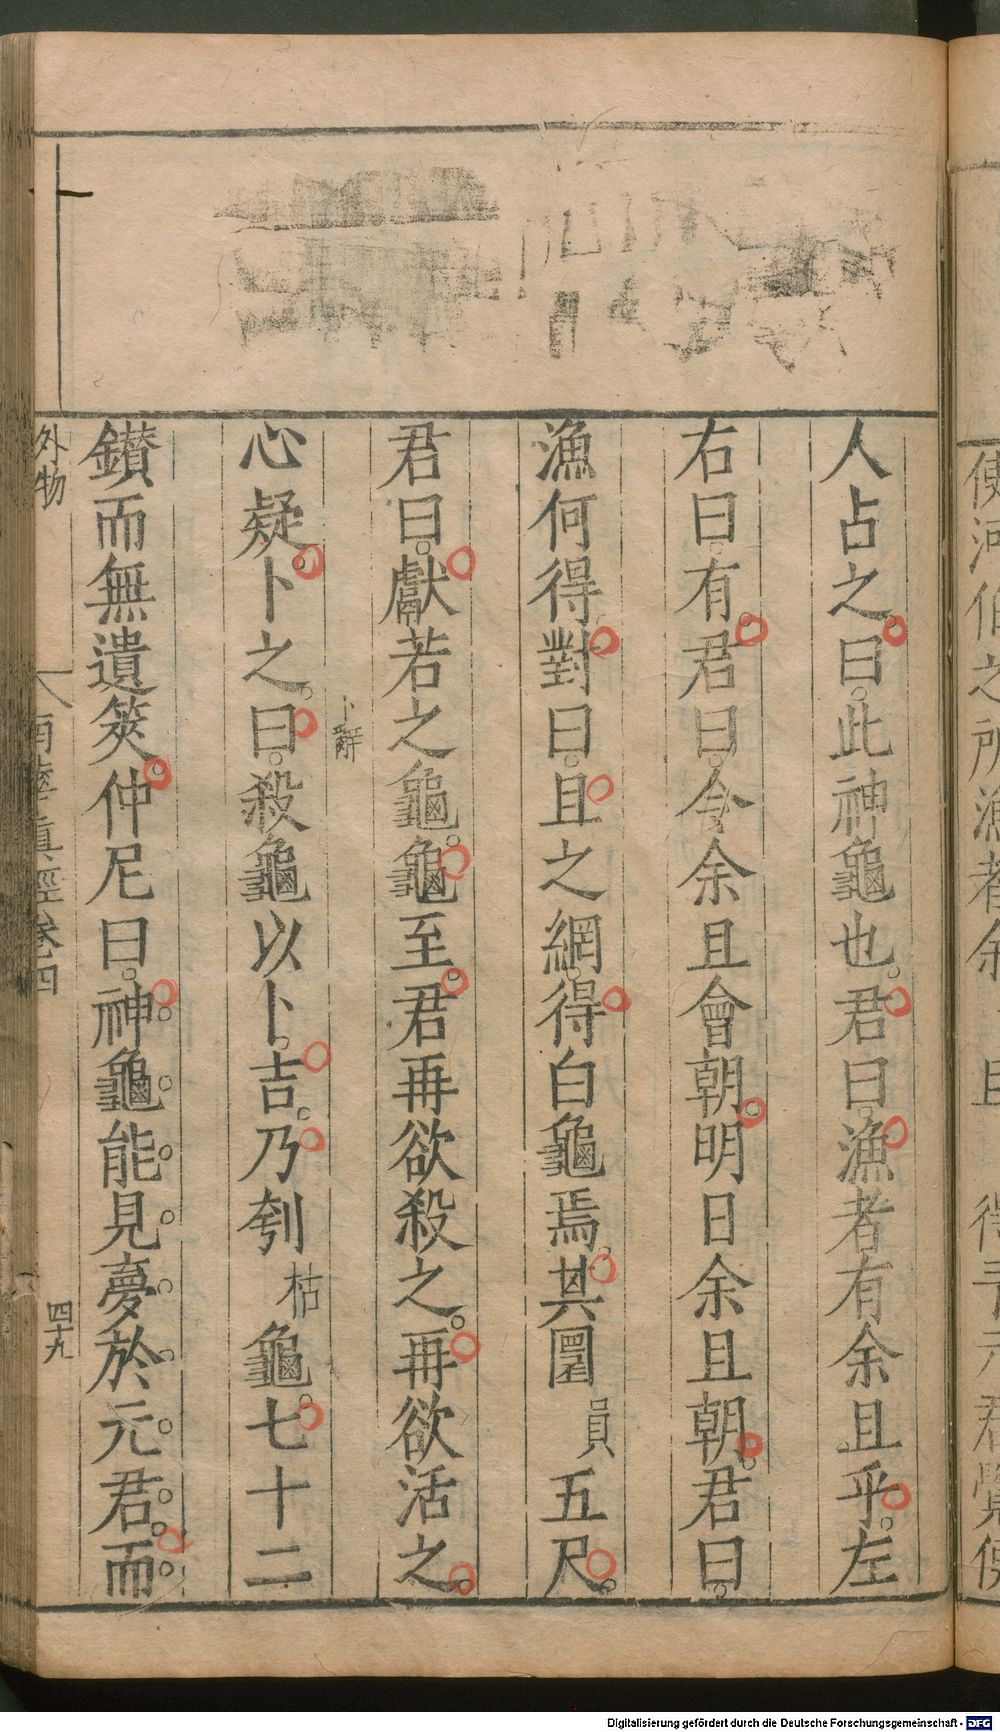 使河伯之所漁者余且得予元君覺使
人占之曰此神龜也君曰漁者有余且乎左
右曰有君曰令余且會朝明日余且朝君曰
漁何得對曰且之網得白龜焉其圓員五尺
君曰獻若之龜龜至君再欲殺之再欲活之
卜辭
心疑卜之曰殺龜以卜吉乃刳枯龜七十二
鑚而無遺筴仲尼曰神龜能見夢於元君而
外物
南華真經卷四
四十九
Digitalisierung gefördert durch die Deutsche Forschungsgemeinschaft - DFG